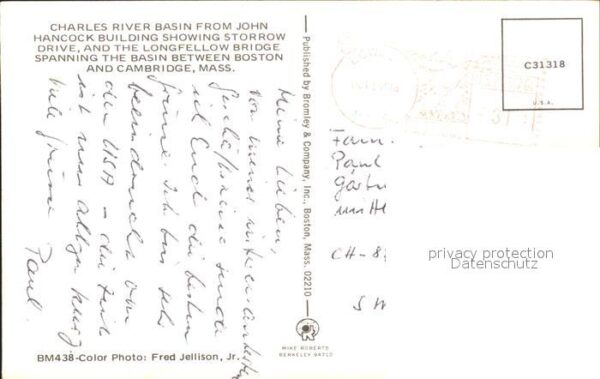 CHARLES RIVER BASIN FROM JOHN
HANCOCK BUILDING SHOWING STORROW
DRIVE, AND THE LONGFELLOW BRIDGE
SPANNING THE BASIN BETWEEN BOSTON
AND CAMBRIDGE, MASS.
Meine Lieben,
von meiner
Geschäftsreise sende
ich Euch die besten
Grüsse. Ich bin sehr
beeindruckt von
den USA - die Zeit
ist nur allzu kurz
Viele Grüsse
Paul
BM438-Color Photo: Fred Jellison, Jr.
Published by Bromley & Company, Inc., Boston, Mass. 02210
MIKE ROBERTS
BERKELEY 94710
C31318
U.S.A.
Fam.
Paul
CH-8
privacy protection
Datenschutz